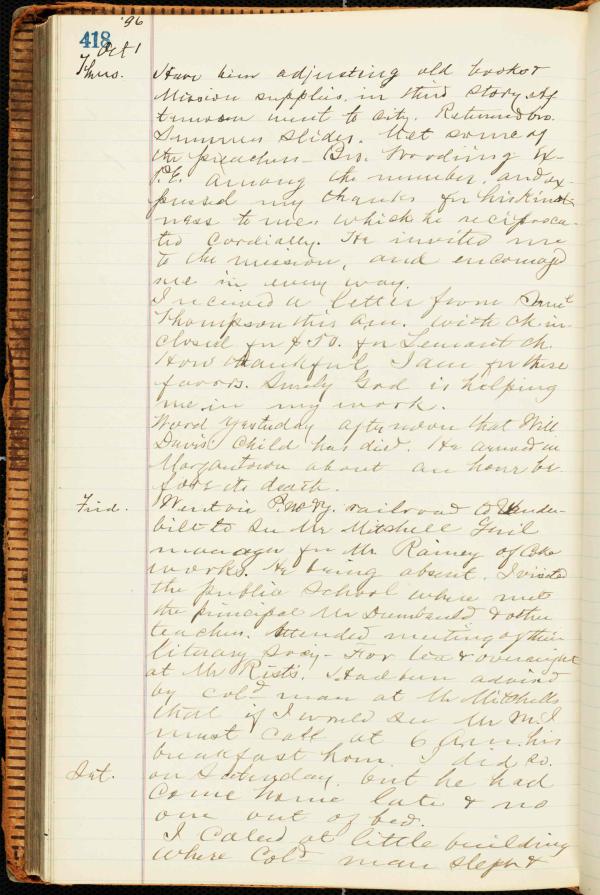 '96
418
Oct 1
Thurs.
Have him adjusting old books &
Mission supplies in third story. Af
ternoon went to city. Returned
Summer slides. Met some of
the preachers - Bro. Wooding Ex-
P.E. among the number, and ex
pressed my thanks for his kind
ness to me, which he reciproca-
ted cordially. He invited me
to the mission, and encouraged
me in every way.
I received a letter from
Thompson this a.m. with ch in-
closed for $50. for Lemont ch.
How thankful I am for these
favors. Surely God is helping
me in my work.
Word yesterday afternoon that Will
Davis child has died. He arrived in
Morgantown about an hour be
fore its death.
Frid.
Went via railroad to Vander-
bilt to see Mr Mitchell Genl
manager for Mr. Rainey of Coke
works. He being absent, I visited
the public School where met
the principal Mr Dumbauld & other
teachers. Attended meeting of their
literary Socy - For tea & overnight
at Mr Rist's. Had been advised
by cold man at Mr Mitchells
that if I would see Mr M. I
must call at 6 a.m. his
breakfast hour. I did so.
Sat.
on Saturday. but he had
come home late & no
one out of bed.
I Caled at little building
where Cold man slept &